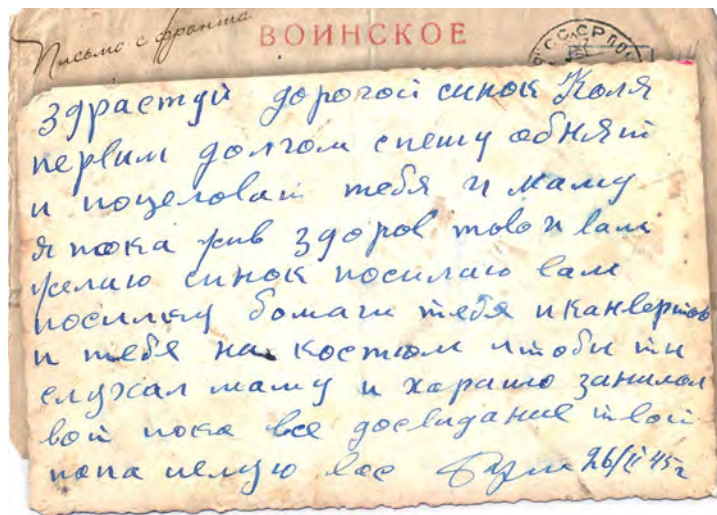 Письмо с фронта
ВОИНСКОЕ
СССР ПОС
здрастуй дорогой синок Коля
первим долгом спешу обнят
и поцеловат тебя и маму
я пока жив здоров тово и вам
желаю синок посилаю вам
посилку бомаги тебя и канвертов
и тебя на костюм чтоби ти
слухал маму и харашо занимал
вот пока все досвидание твой
папа целую вас 26/II 45г